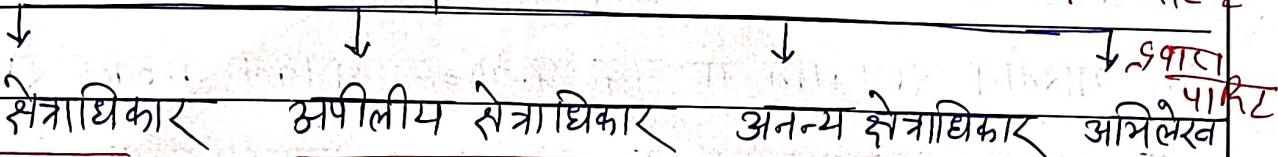 क्षेत्राधिकार अपीलीय क्षेत्राधिकार अनन्य क्षेत्राधिकार अभिलेख